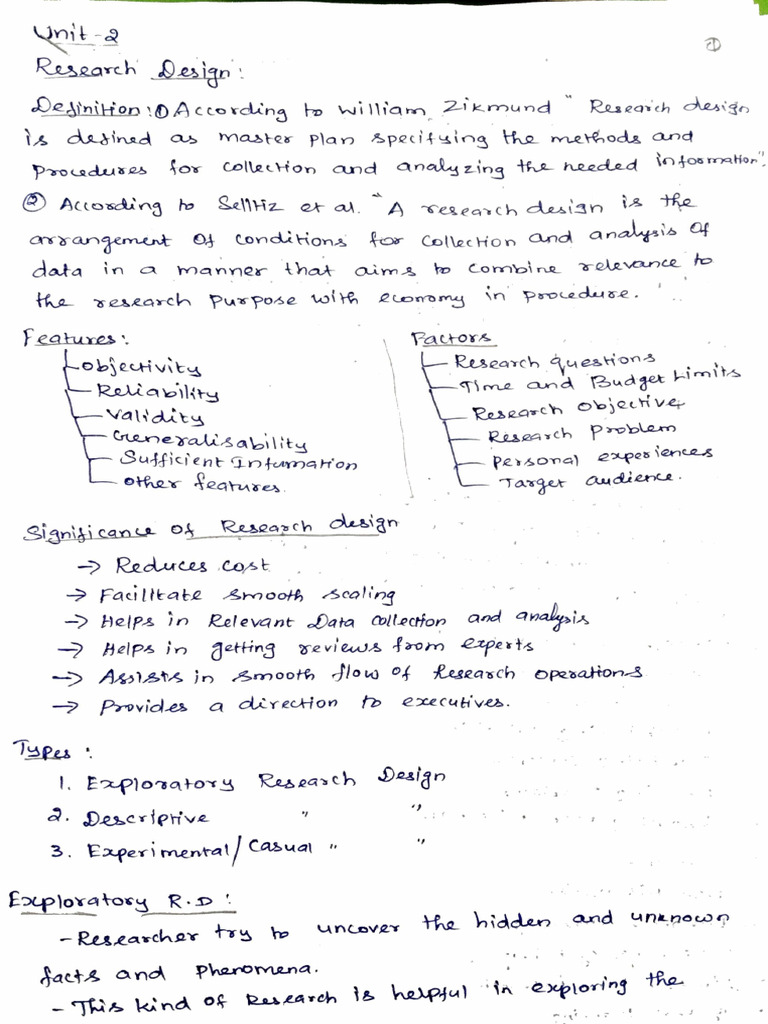 Unit-2
①
Research Design:
Definition: ① According to William Zikmund "Research design
is defined as master plan specifying the methods and
procedures for collection and analyzing the needed information".
② According to Selltiz et al. "A research design is the
arrangement of conditions for collection and analysis of
data in a manner that aims to combine relevance to
the research purpose with economy in procedure."
Features:
Objectivity
Reliability
Validity
Generalisability
Sufficient Infumation
other features.
Factors
Research questions
Time and Budget Limits
Research Objective
Research Problem
Personal experiences
Target audience.
Significance of Research design
→ Reduces cost
→ Facilitate smooth scaling
→ Helps in Relevant Data collection and analysis
→ Helps in getting reviews from experts
→ Assists in smooth flow of Research operations
→ Provides a direction to executives.
Types:
1. Exploratory Research Design
2. Descriptive " "
3. Experimental/Casual " "
Exploratory R.D:
- Researcher try to uncover the hidden and unknown
facts and phenomena.
- This kind of Research is helpful in exploring the